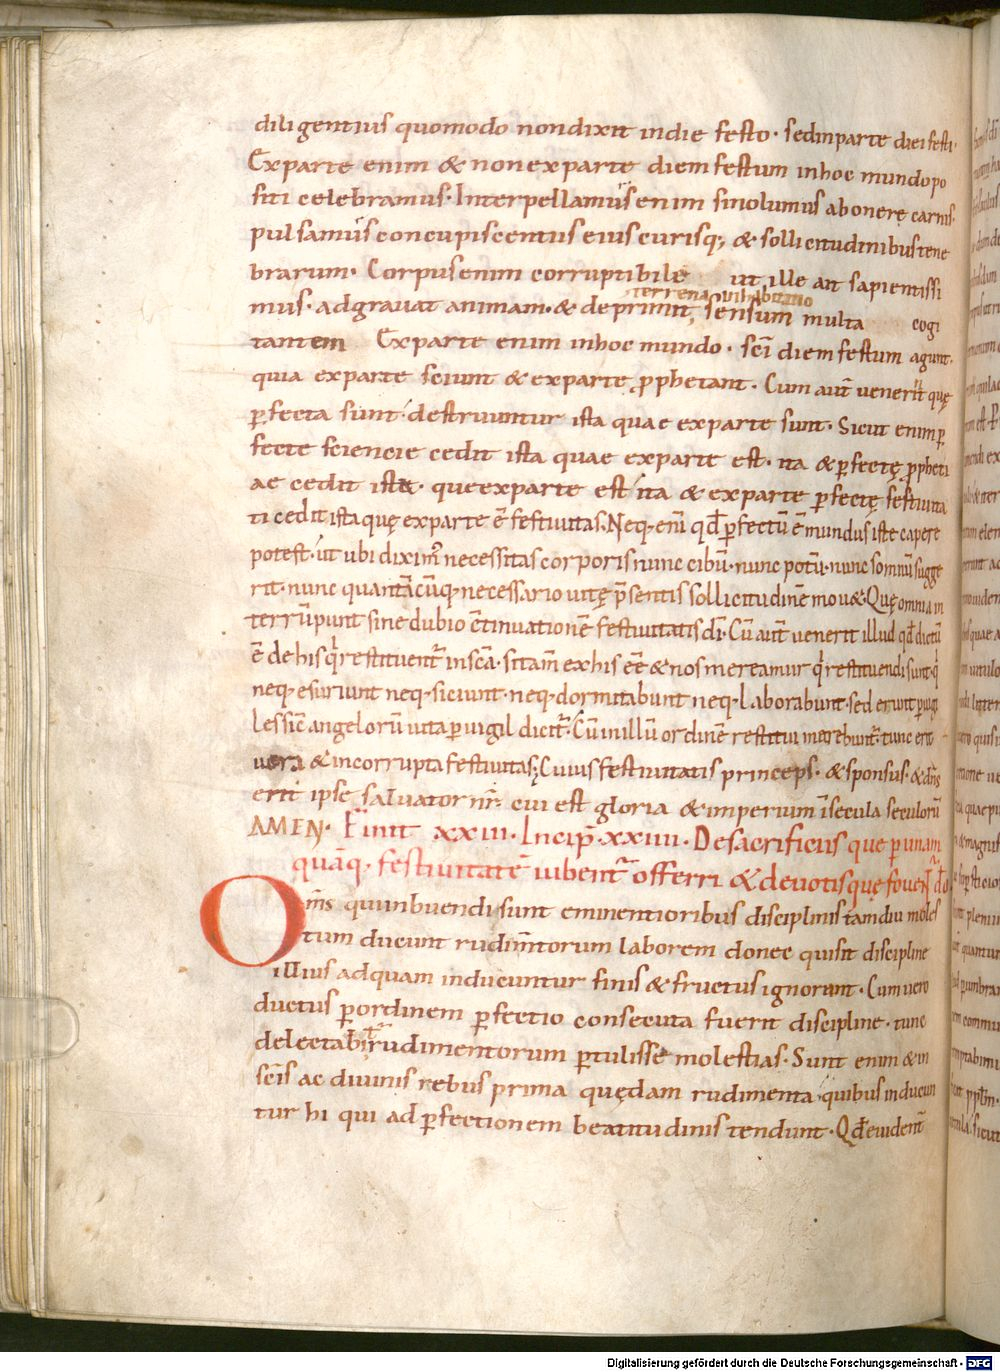 diligentius quomodo non dixit in die festo· sed in parte diei festi·
Ex parte enim & non ex parte diem festum in hoc mundo po
siti celebramus· Interpellamus enim si nolumus ab onere carnis·
pulsamus concupiscentiis eius curisq; & sollicitudinibus tene
brarum· Corpus enim corruptibile ut ille ait sapientissi
terrena inhabitatio
mus· adgrauat animam· & deprimit, sensum multa cogi
tantem Ex parte enim in hoc mundo· sc̄i diem festum agunt·
quia ex parte sciunt & ex parte ꝓphetant· Cum aut̄ venerit quę
ꝑfecta sunt· destruuntur ista quae ex parte sunt· Sicut enim ꝑ
fecte sciencie cedit ista quae ex parte est· ita & ꝑfectę ꝓpheti
ae cedit ista· que ex parte est ita & ex parte ꝑfectę festiuita
ti cedit ista quę ex parte ē festiuitas. Neq· eni̅ qđ ꝑfectū ē mundus iste capere
potest· ut ubi diximꝰ necessitas corporis nunc cibū· nunc potū· nunc somnū sugge
rit· nunc quantācūq· necessario uitę p̄sentis sollicitudinē mou&· Quę omnia in
terrūpunt sine dubio c̄tinuationē festiuitatis dī· Cū aut̄ venerit illud qđ dictū
ē de his q̇ restituentr̄ in sc̄a· si tam̄ ex his eē & nos mereamur q̇ restituendi sunt· q̇
neq· esuriunt neq· siciunt· neq· dormitabunt neq· laborabunt· sed erunt ꝑuigi
les sic̄ angelorū uita ꝑuigil dicitr̄· Cū in illū ordinē restitui merebuntr̄· tunc erit
uera & incorrupta festiuitas; Cuius festiuitatis princeps· & sponsus· & dn̄s
erit ipse saluator nr̄· cui est gloria & imperium ī secula seculorū
AMEN· Finit xxiii· Incip̄· xxiiii· De sacrificiis que ꝑ unam
quāq· festiuitatē iubentr̄ offerri & de uotis quę
Om̄s qui inbuendi sunt eminentioribus disciplinis tamdiu moles
tum ducunt rudim̄torum laborem donec qui sit discipline
illius ad quam inducuntur finis & fructus ignorant· Cum uero
ductus ꝑ ordinem ꝑfectio consecuta fuerit discipline· tunc
delectabitr̄ rudimentorum ꝑtulisse molestias· Sunt enim & in
sc̄is ac diuinis rebus prima quędam rudimenta, quibus inducun
tur hi qui ad ꝑfectionem beatitudinis tendunt· Qđ euident̄
Digitalisierung gefördert durch die Deutsche Forschungsgemeinschaft - DFG